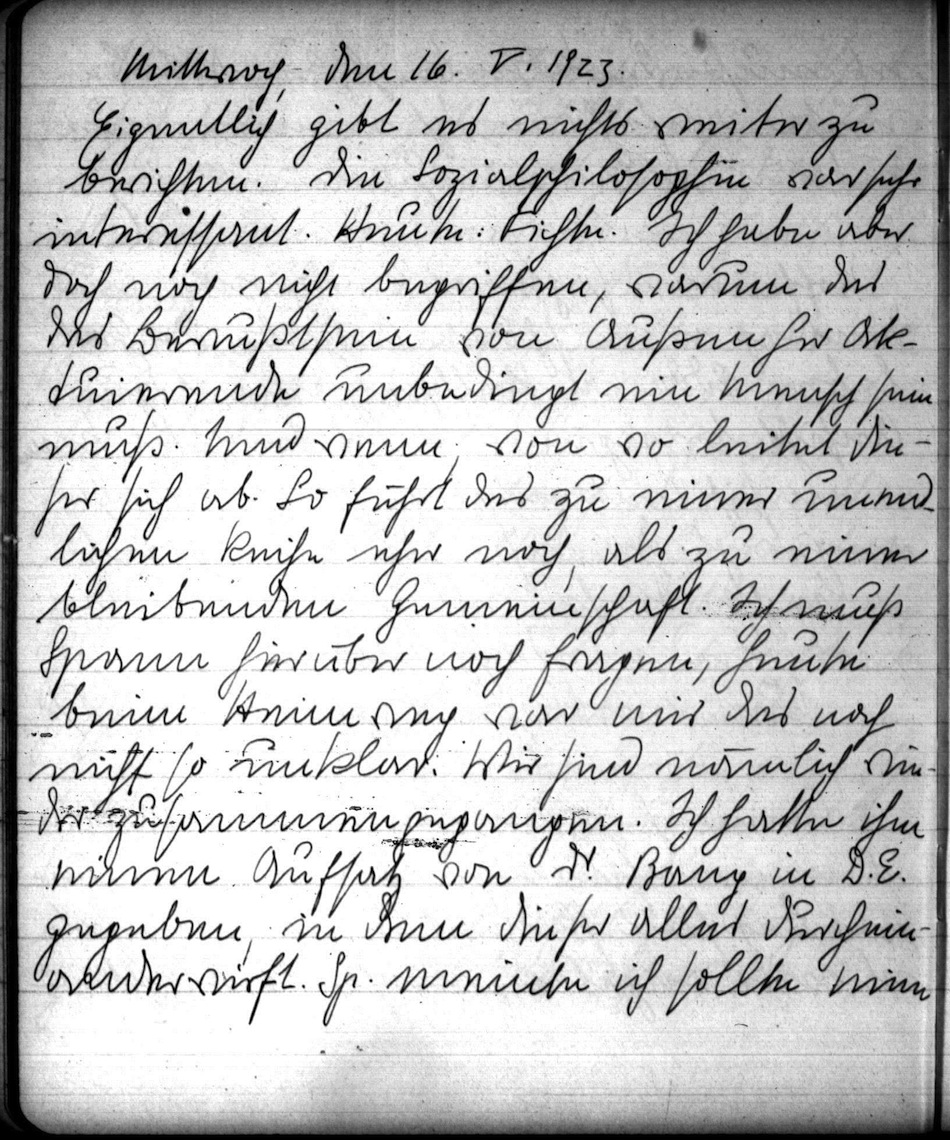 Mittwoch, den 16. V. 1923.
Eigentlich gibt es nichts weiter zu
berichten. Die Sozialphilosophie war sehr
interessant. Heute: Fichte. Ich habe aber
doch noch nicht begriffen, warum das
das Bewußtsein von Außen her Ak-
tuierende unbedingt ein Mensch sein
muß. Und wenn, von wo leitet die-
ser sich ab. So führt das zu einer unend-
lichen Reihe eher noch, als zu einer
bleibenden Gemeinschaft. Ich muß
Spann hierüber noch fragen, heute
beim Heimweg war mir das noch
nicht so unklar. Wir sind nämlich wie-
der zusammen gegangen. Ich hatte ihm
einen Aufsatz von Dr. Bang in D.E.
gegeben, in dem dieser alles durchein-
anderwirft. Sp. meinte ich sollte einen